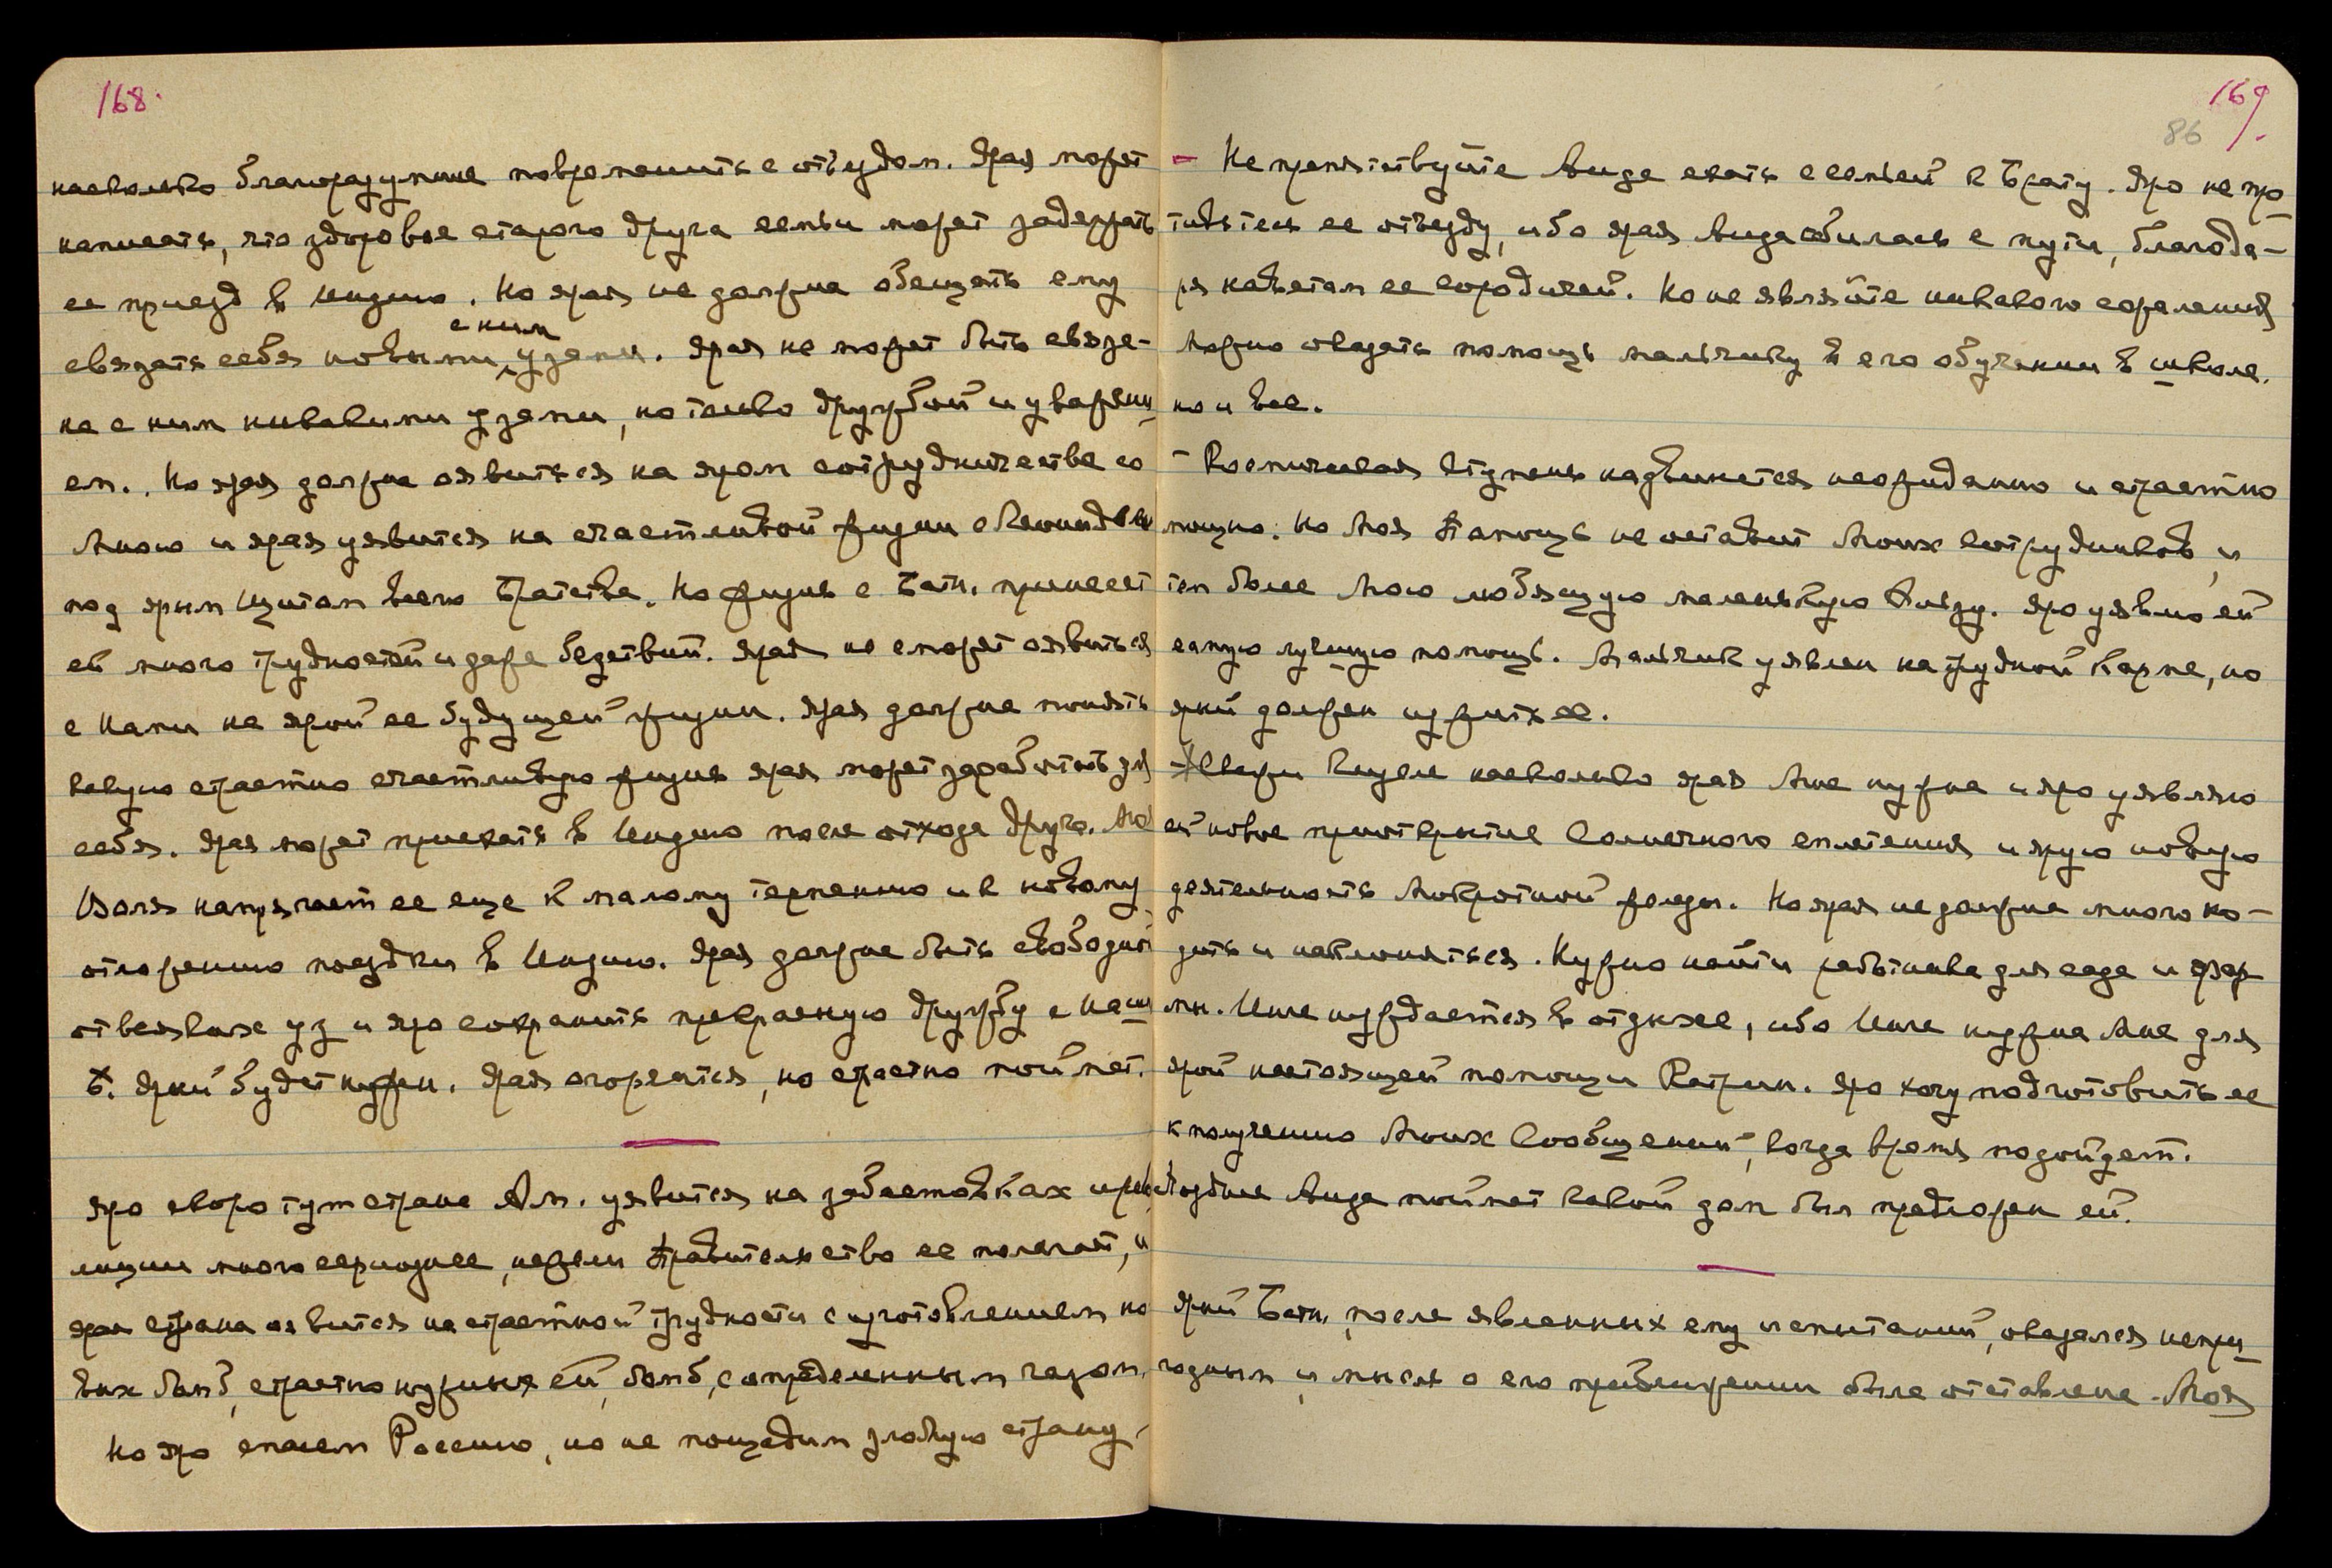 168.
насколько благоразумнее повременить с отъездом. Ярая может
написать, что здоровье старого друга семьи может задержать
ее приезд в Индию. Но ярая не должна обещать ему
связать себя новыми с ним узами. Ярая не может быть связа-
на с ним никакими узами, но только дружбой и уважени-
ем. Но ярая должна оявиться на яром сотрудничестве со
Мною и ярая уявится на счастливой жизни с
под ярым Щитом всего Братства. Но жизнь с Батн. принесет
ей много трудностей и даже бедствий. Ярая не сможет оявиться
с Нами на ярой ее будущей жизни. Ярая должна понять
какую страстно счастливую жизнь ярая может заработать для
себя. Ярая может приехать в Индию после отхода друга. Моя
Воля напрягает ее еще к малому терпению и к новому
отложению поездки в Индию. Ярая должна быть свободной
от всяких уз и яро сохранить прекрасную дружбу с Наш
Б. Ярый будет нужен. Ярая огорчится, но страстно поймет.
Яро скоро тут страна Ам. уявится на забастовках и рево
люции много серьознее, нежели Правительство ее полагает, и
ярая страна оявится на страстной трудности с изготовлением но
вых бомб, страстно нужных ей, бомб, с определенным газом.
Но яро спасем Россию, но не пощадим злобную страну.
169.
86
- Не препятствуйте Аиде ехать с семьей к Брату. Яро не про
тивьтесь ее отъезду, ибо ярая Аида сбилась с пути, благода-
ря наветам ее сородичей. Но не являйте никакого сожаления
Можно оказать помощь мальчику в его обучении в школе.
но и все.
- Космическая Ступень надвинется неожиданно и страстно
мощно. Но Моя Помощь не оставит Моих Сотрудников, и
тем более Мою любящую маленькую . Яро уявлю ей
самую лучшую помощь. Мальчик уявлен на трудной Карме, но
ярый должен изжить ее.
- Скажи насколько ярая Мне нужна и яро уявляю
ей новое приоткрытие Солнечного сплетения и ярую новую
деятельность Мокротной железы. Но ярая не должна много хо-
дить и наклоняться. Нужно найти работника для сада и фер
мы. Инге нуждается в отдыхе, ибо Инге нужна Мне для
ярой настоящей помощи Катрин. Яро хочу подготовить ее
к получению Моих Сообщений, когда время подойдет.
Позднее Аида поймет какой дом был предложен ей.
Ярый Батн. после явленных ему испытаний, оказался непри-
годным и мысль о его приближении была оставлена. Моя